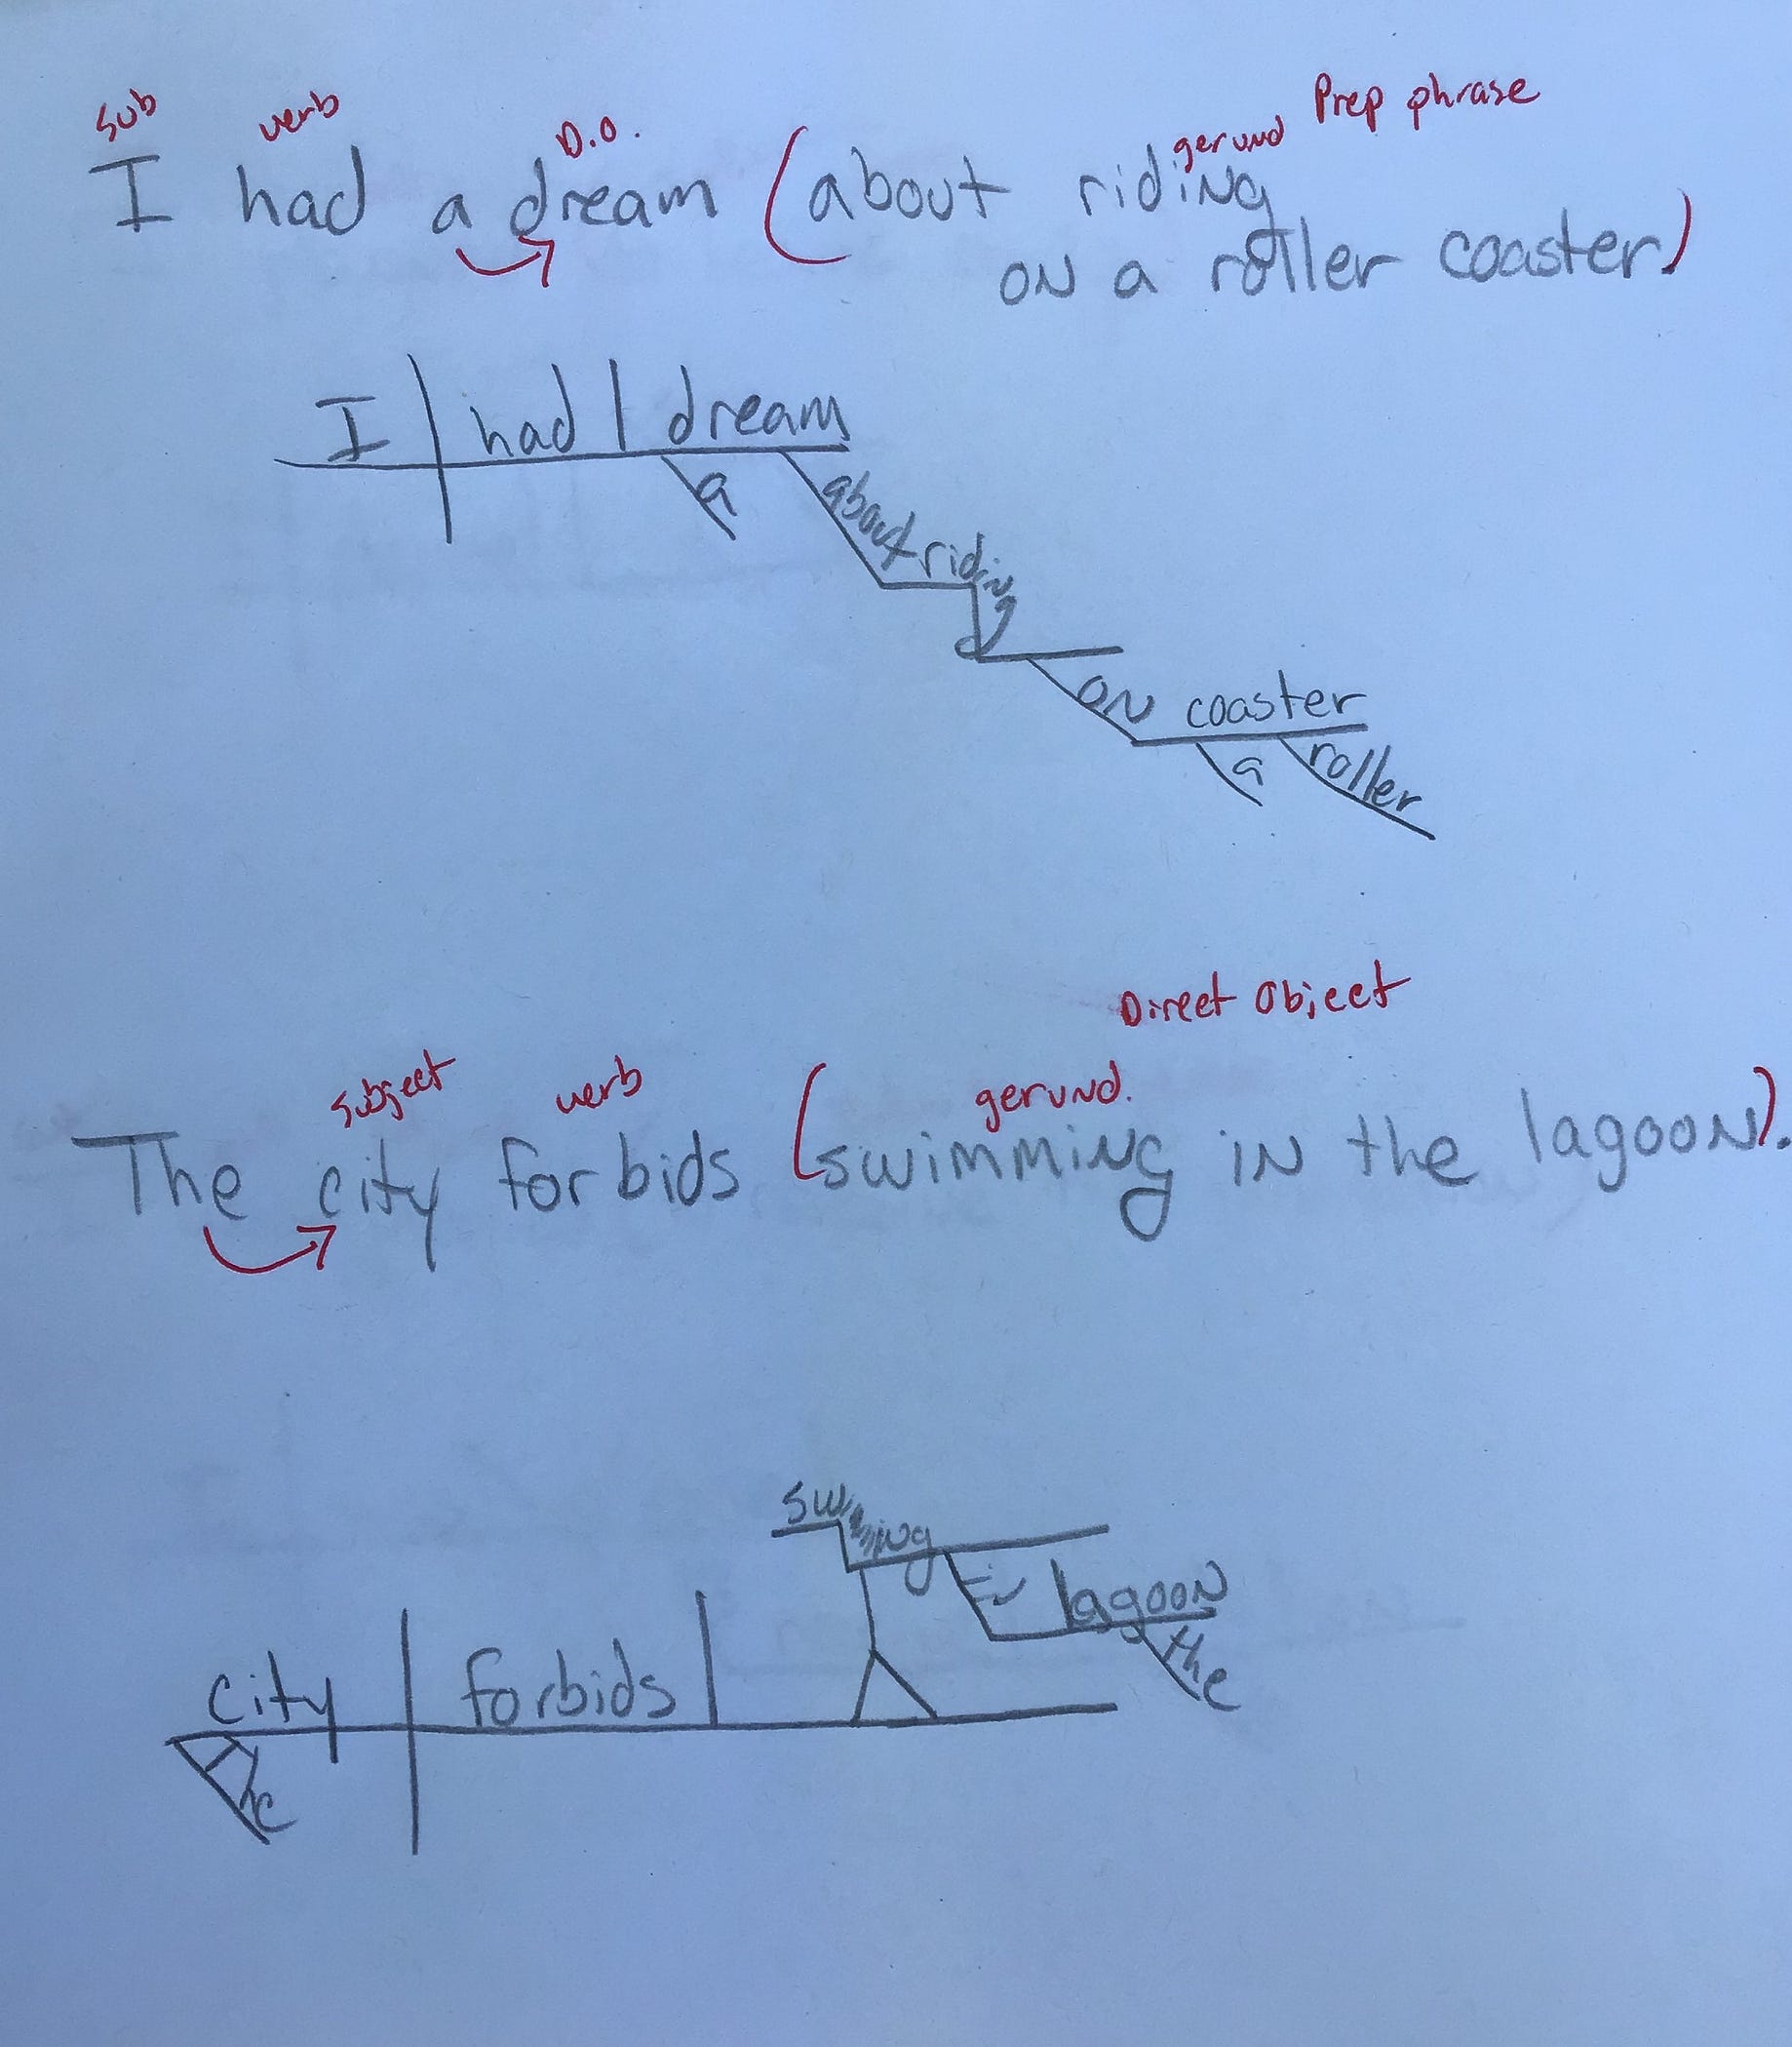 sub verb D.O. gerund Prep phrase
I had a dream (about riding
on a roller coaster)
I had dream
a about riding
on coaster
a roller
Direct Object
subject verb gerund.
The city forbids (swimming in the lagoon).
swimming
in lagoon
the
city forbids
The